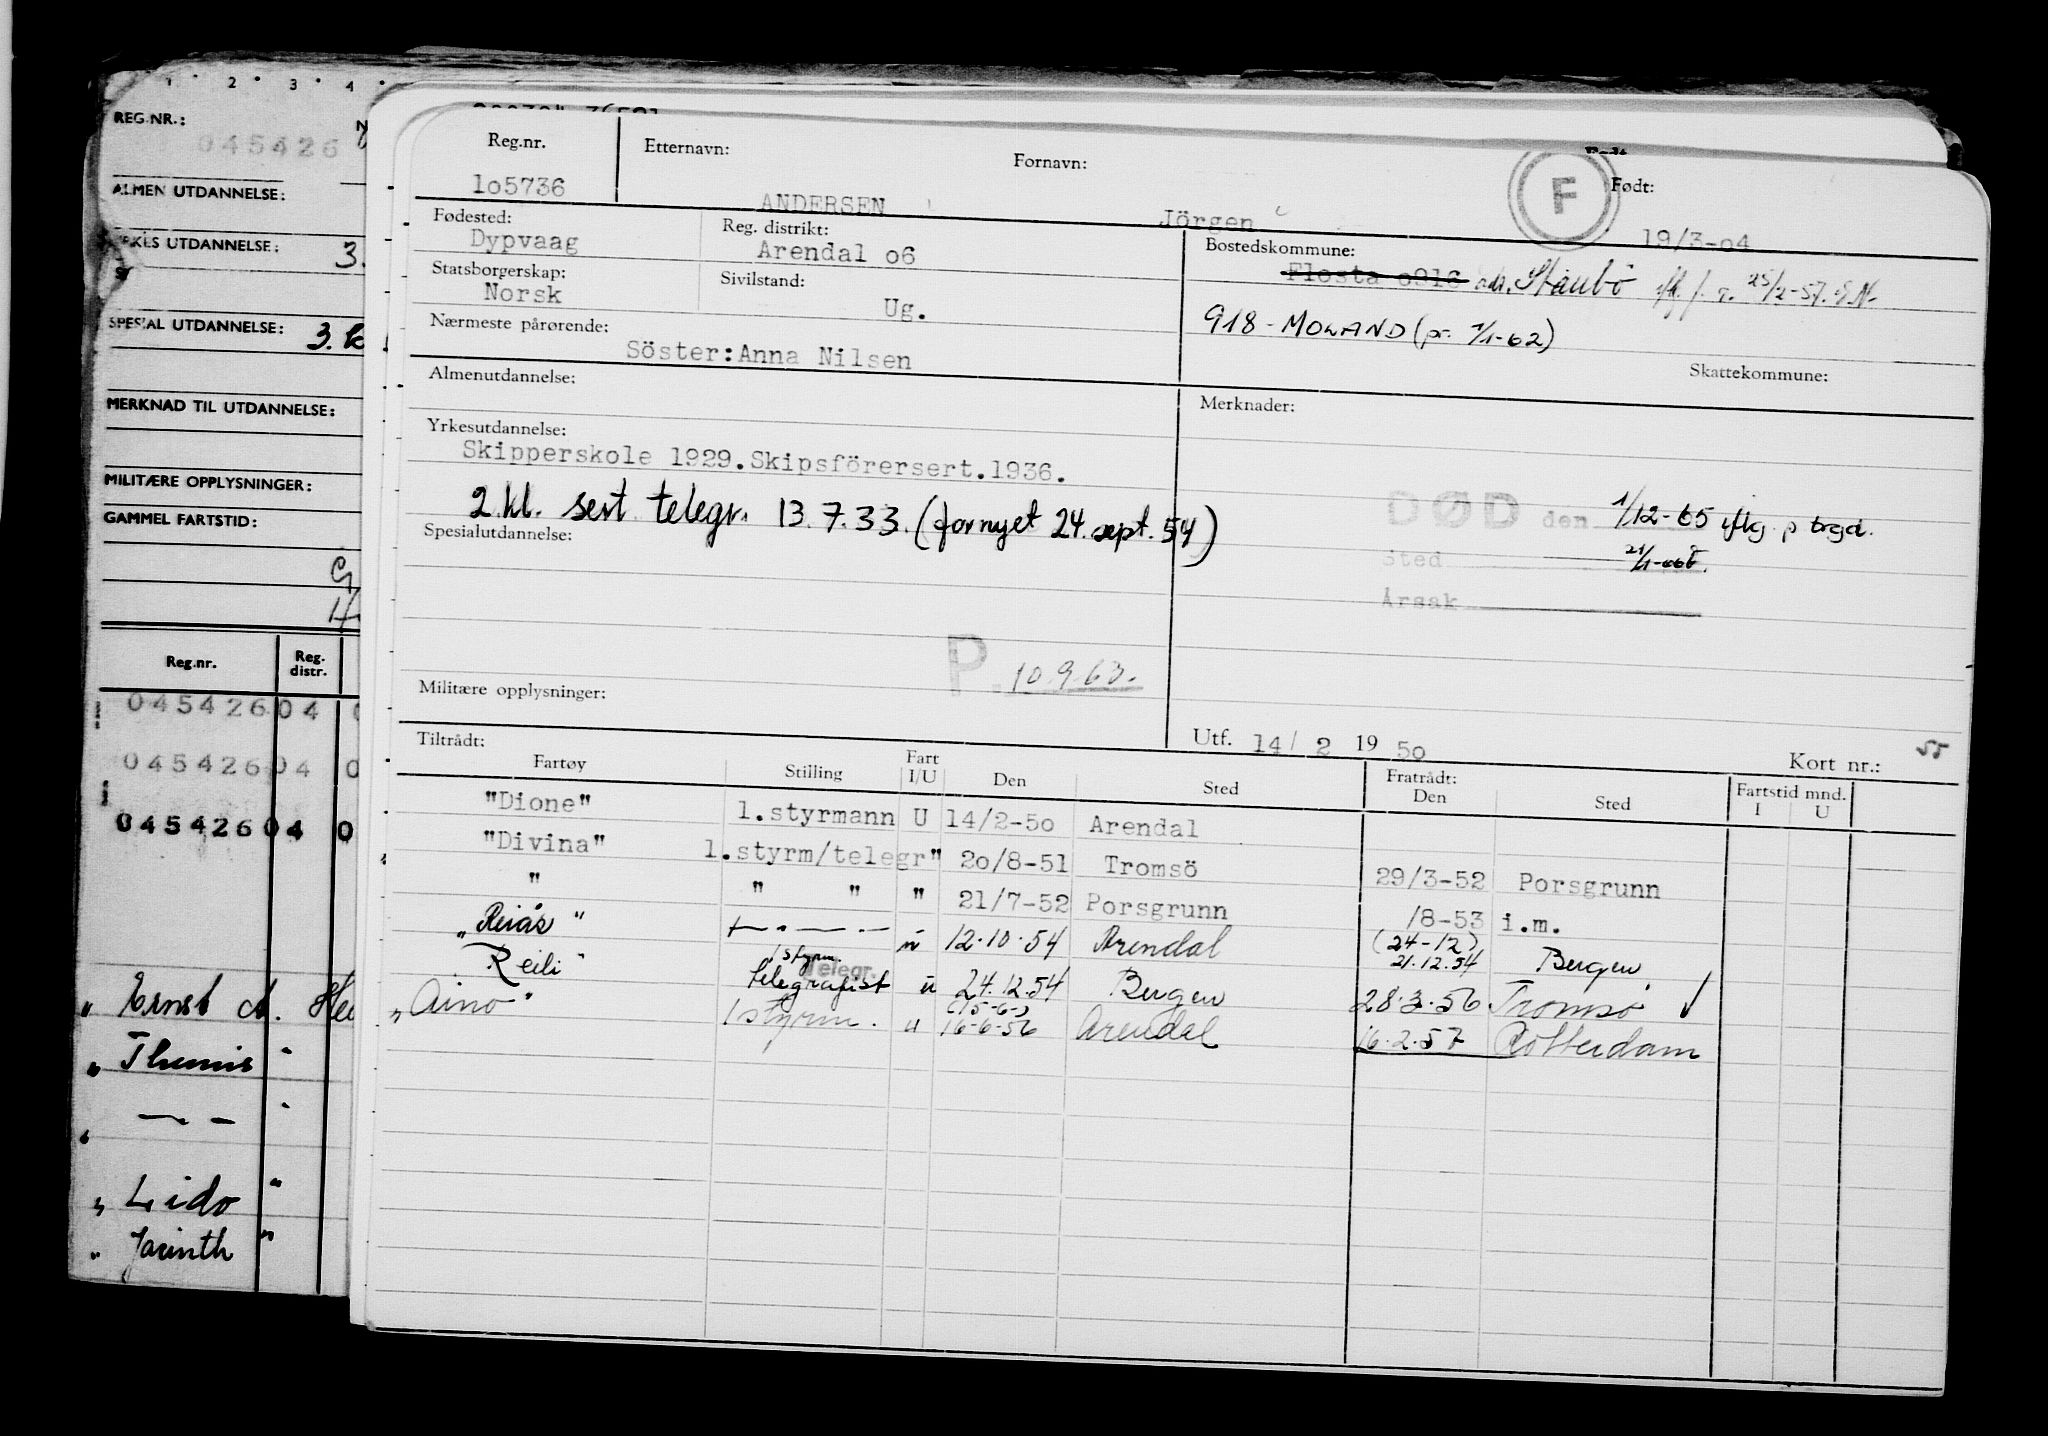 1 2 3 4
REG.NR.:
045426
ALMEN UTDANNELSE:
YRKES UTDANNELSE: 3.
SPESIAL UTDANNELSE: 3.
MERKNAD TIL UTDANNELSE:
MILITÆRE OPPLYSNINGER:
GAMMEL FARTSTID:
Reg.nr. Reg. distr.
045426 04 0
045426 04 0
045426 04 0
" Ernst A.
" Themis "
" — — "
" Lido "
" Jacinth "
Reg.nr. Etternavn: Fornavn: Født:
lo5736 ANDERSEN Jörgen F 19/3-o4
Fødested: Reg. distrikt: Bostedskommune:
Dypvaag Arendal o6 Flosta o916 Staubö 25/2-57.
Statsborgerskap: Sivilstand:
Norsk Ug.
918 - MOLAND (pr. 1/1-62)
Nærmeste pårørende: Skattekommune:
Söster:Anna Nilsen
Almenutdannelse: Merknader:
Yrkesutdannelse:
Skipperskole 1929.Skipsförersert.1936.
2.kl. sert telegr. 13.7.33. (fornyet 24.sept.54)
DØD den 1/12-65 iflg. p
Spesialutdannelse:
Sted
Årsak
P. 10.9.63.
Militære opplysninger:
Utf. 14/ 2 19 5o Kort nr.: 55
Tiltrådt: Fratrådt: Fartstid mnd.
Fartøy Stilling Fart I/U Den Sted Den Sted I U
"Dione" 1.styrmann U 14/2-5o Arendal
"Divina" 1.styrm/telegr " 2o/8-51 Tromsö 29/3-52 Porsgrunn
" " " " 21/7-52 Porsgrunn /8-53 i.m.
"Reiås" — " — u 12.10.54 Arendal (24-12) 21.12.54 Bergen
Reili" 1styrm. Telegr. telegrafist u 24.12.54 Bergen 28.3.56 Tromsø
"Aino" 1 styrm. u (15-6-) 16-6-56 Arendal 16.2.57 Rotterdam